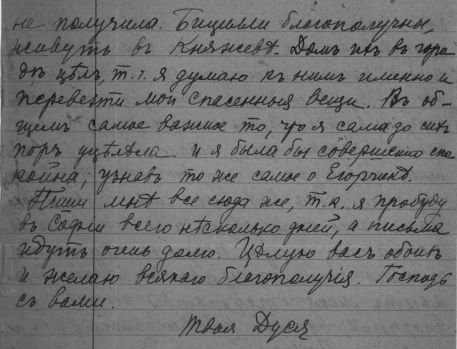 не получила. Бицилли благополучны,
живутъ въ Княжевѣ. Домъ ихъ въ горо-
дѣ цѣлъ, т.ч. я думаю къ нимъ именно и
перевезти мои спасенныя вещи. Въ об-
щемъ самое важное то, что я сама до сихъ
поръ уцѣлѣла. и я была бы совершенно спо-
койна, узнавъ то же самое о Егорчикѣ.
Пиши мнѣ все сюда же, т.к. я пробуду
въ Софіи всего нѣсколько дней, а письма
идутъ очень долго. Цѣлую васъ обоихъ
и желаю всякаго благополучія. Господь
съ вами.
Твоя Дуся